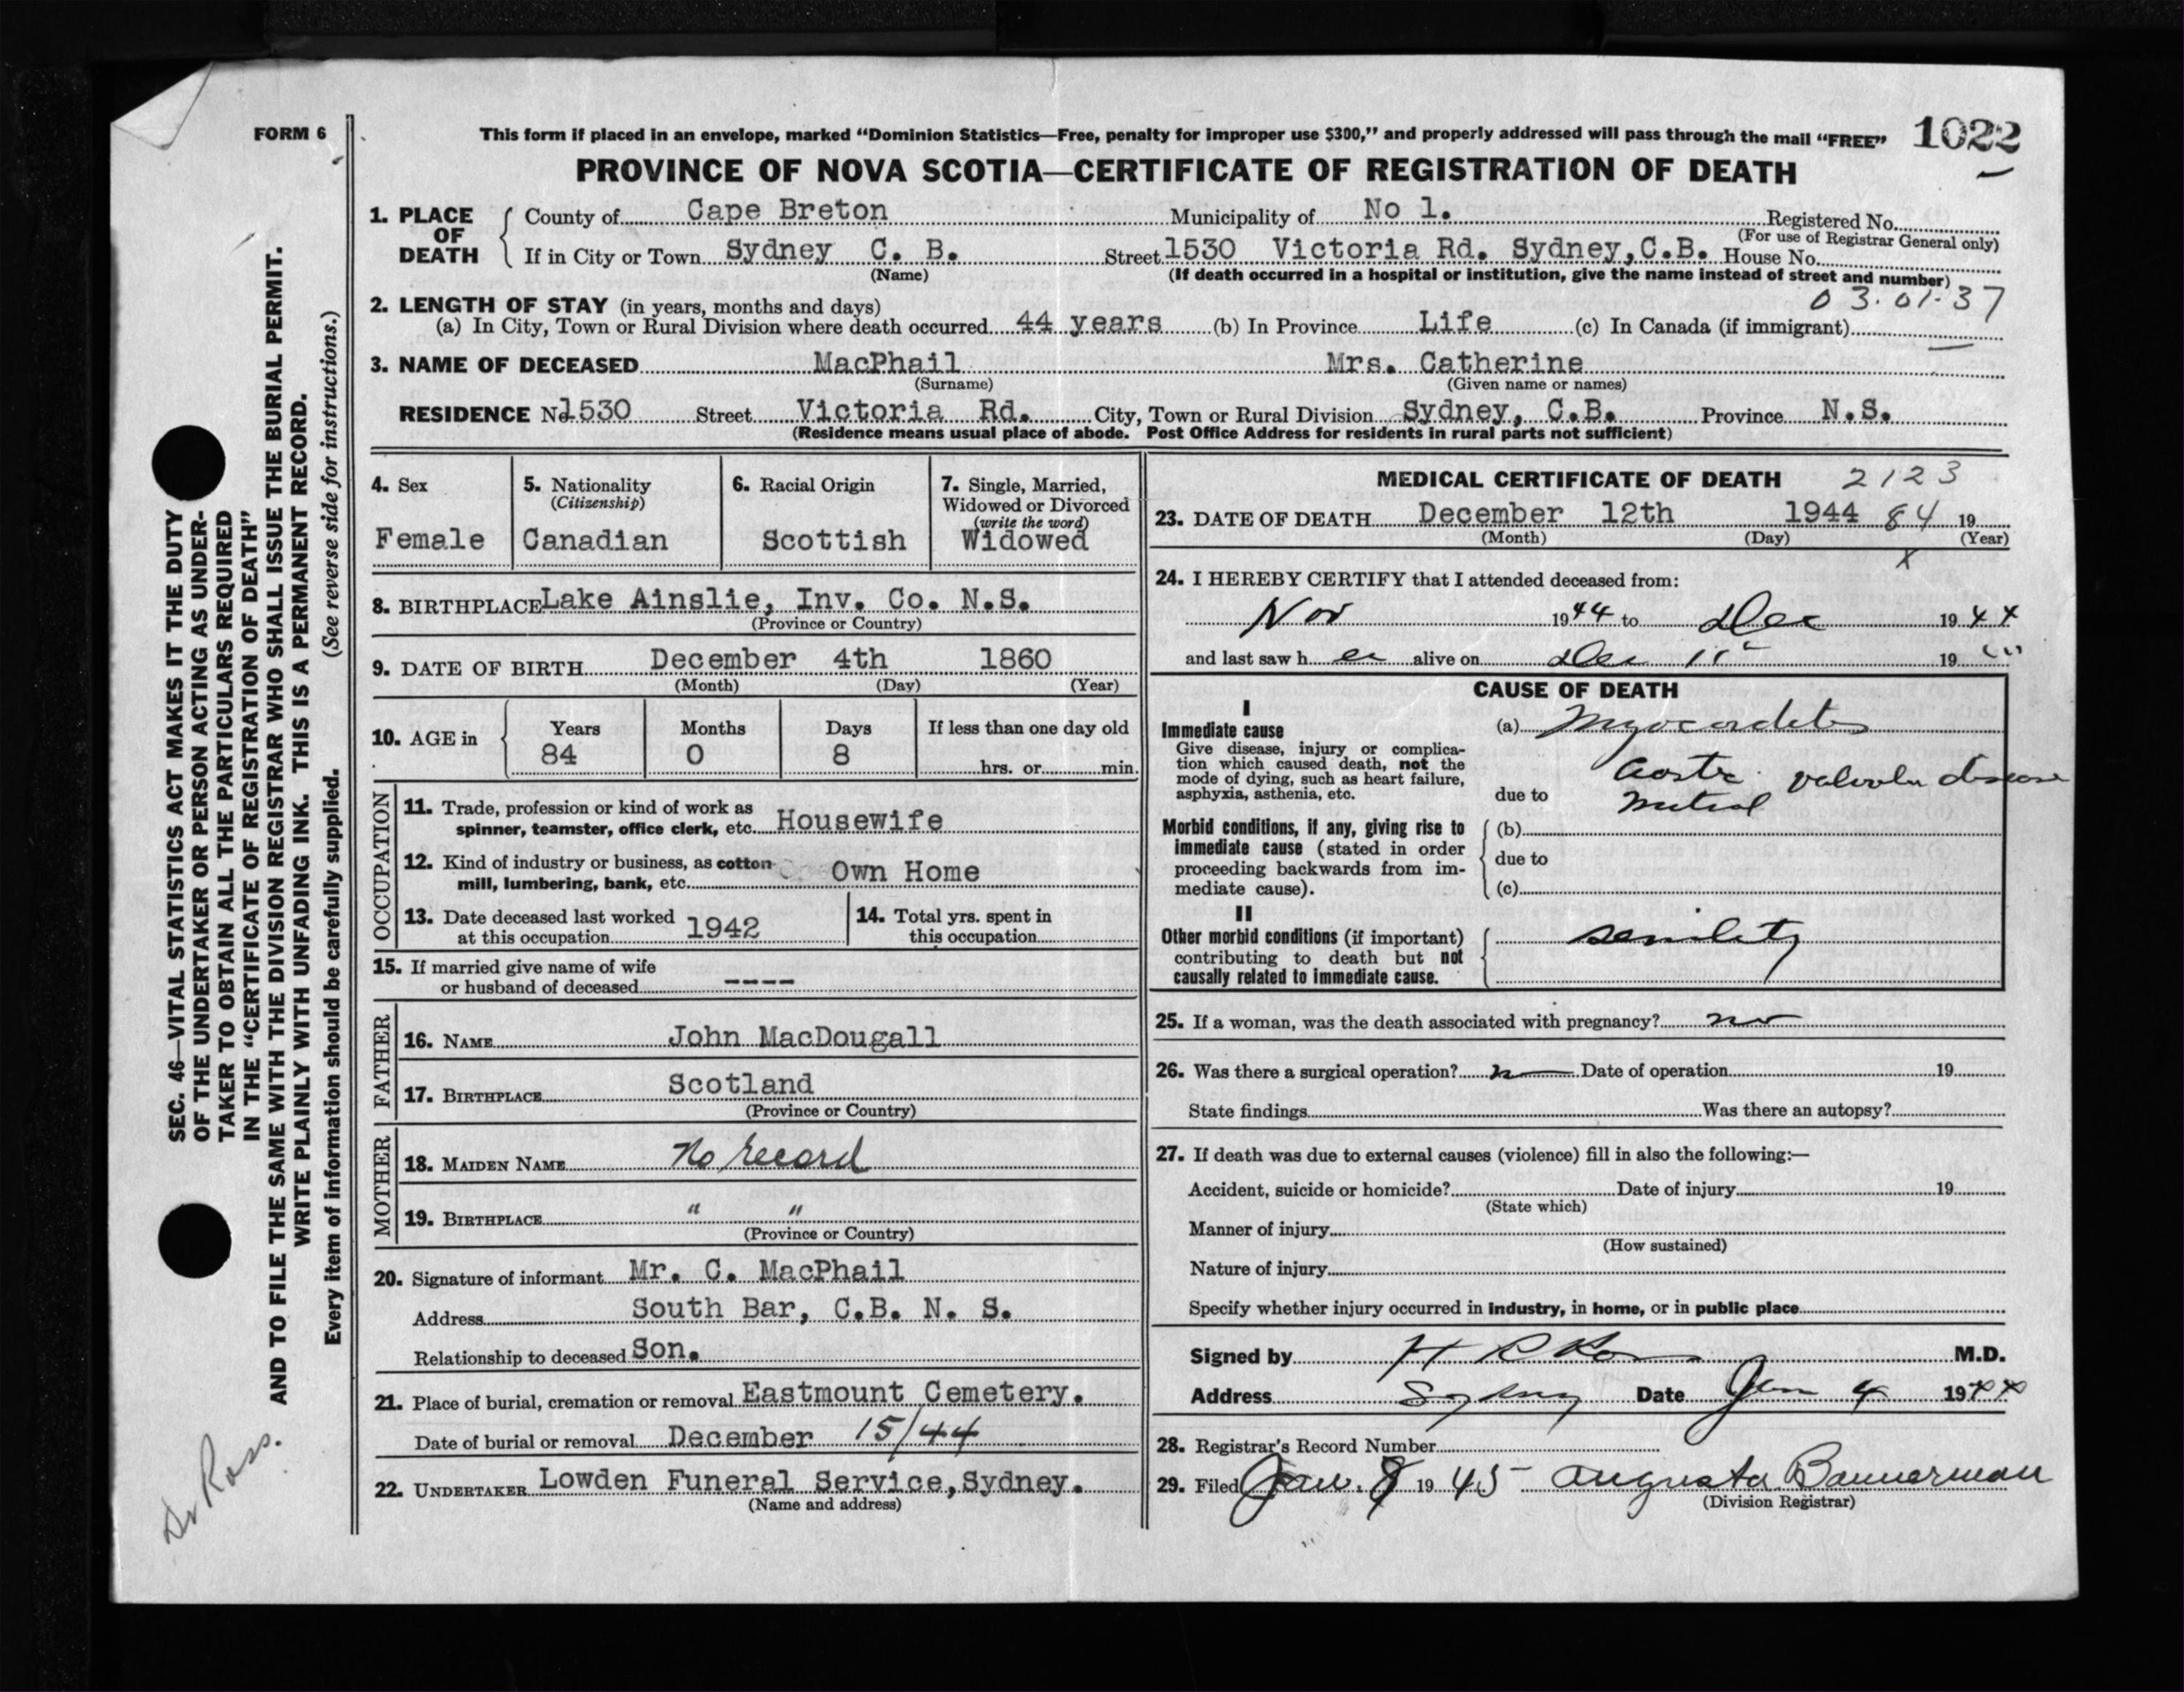 FORM 6
This form if placed in an envelope, marked “Dominion Statistics—Free, penalty for improper use $300,” and properly addressed will pass through the mail “FREE”
1022
PROVINCE OF NOVA SCOTIA—CERTIFICATE OF REGISTRATION OF DEATH
1. PLACE OF DEATH
County of Cape Breton Municipality of No 1. Registered No.
(For use of Registrar General only)
If in City or Town Sydney C. B. Street 1530 Victoria Rd. Sydney, C.B. House No.
(Name) (If death occurred in a hospital or institution, give the name instead of street and number)
03.01.37
2. LENGTH OF STAY (in years, months and days)
(a) In City, Town or Rural Division where death occurred 44 years (b) In Province Life (c) In Canada (if immigrant)
3. NAME OF DECEASED MacPhail Mrs. Catherine
(Surname) (Given name or names)
RESIDENCE No 1530 Street Victoria Rd. City, Town or Rural Division Sydney, C.B. Province N.S.
(Residence means usual place of abode. Post Office Address for residents in rural parts not sufficient)
4. Sex
Female
5. Nationality
(Citizenship)
Canadian
6. Racial Origin
Scottish
7. Single, Married,
Widowed or Divorced
(write the word)
Widowed
8. BIRTHPLACE Lake Ainslie, Inv. Co. N.S.
(Province or Country)
9. DATE OF BIRTH December 4th 1860
(Month) (Day) (Year)
10. AGE in
Years Months Days If less than one day old
84 0 8 hrs. or min.
OCCUPATION
11. Trade, profession or kind of work as
spinner, teamster, office clerk, etc. Housewife
12. Kind of industry or business, as cotton
mill, lumbering, bank, etc. Own Home
13. Date deceased last worked
at this occupation 1942
14. Total yrs. spent in
this occupation
15. If married give name of wife
or husband of deceased ----
FATHER
16. NAME John MacDougall
17. BIRTHPLACE Scotland
(Province or Country)
MOTHER
18. MAIDEN NAME No record
19. BIRTHPLACE " "
(Province or Country)
20. Signature of informant Mr. C. MacPhail
Address South Bar, C.B. N. S.
Relationship to deceased Son.
21. Place of burial, cremation or removal Eastmount Cemetery.
Date of burial or removal December 15/44
22. UNDERTAKER Lowden Funeral Service, Sydney.
(Name and address)
MEDICAL CERTIFICATE OF DEATH 2123
23. DATE OF DEATH December 12th 1944 84 19
(Month) (Day) (Year)
X
24. I HEREBY CERTIFY that I attended deceased from:
Nov 1944 to Dec 1944
and last saw her alive on Dec 11 19
CAUSE OF DEATH
I
Immediate cause
Give disease, injury or complica-
tion which caused death, not the
mode of dying, such as heart failure,
asphyxia, asthenia, etc.
(a) Myocarditis
due to
Aortic
Mitral valvular disease
Morbid conditions, if any, giving rise to
immediate cause (stated in order
proceeding backwards from im-
mediate cause).
(b)
due to
(c)
II
Other morbid conditions (if important)
contributing to death but not
causally related to immediate cause.
senility
25. If a woman, was the death associated with pregnancy? no
26. Was there a surgical operation? no Date of operation 19
State findings Was there an autopsy?
27. If death was due to external causes (violence) fill in also the following:—
Accident, suicide or homicide? Date of injury 19
(State which)
Manner of injury
(How sustained)
Nature of injury
Specify whether injury occurred in industry, in home, or in public place
Signed by H R Ross M.D.
Address Sydney Date Jan 4 1944
28. Registrar's Record Number
29. Filed Jan. 8 1945 Augusta Bannerman
(Division Registrar)
SEC. 46—VITAL STATISTICS ACT MAKES IT THE DUTY
OF THE UNDERTAKER OR PERSON ACTING AS UNDER-
TAKER TO OBTAIN ALL THE PARTICULARS REQUIRED
IN THE “CERTIFICATE OF REGISTRATION OF DEATH”
AND TO FILE THE SAME WITH THE DIVISION REGISTRAR WHO SHALL ISSUE THE BURIAL PERMIT.
WRITE PLAINLY WITH UNFADING INK. THIS IS A PERMANENT RECORD.
Every item of information should be carefully supplied. (See reverse side for instructions.)
Dr Ross.